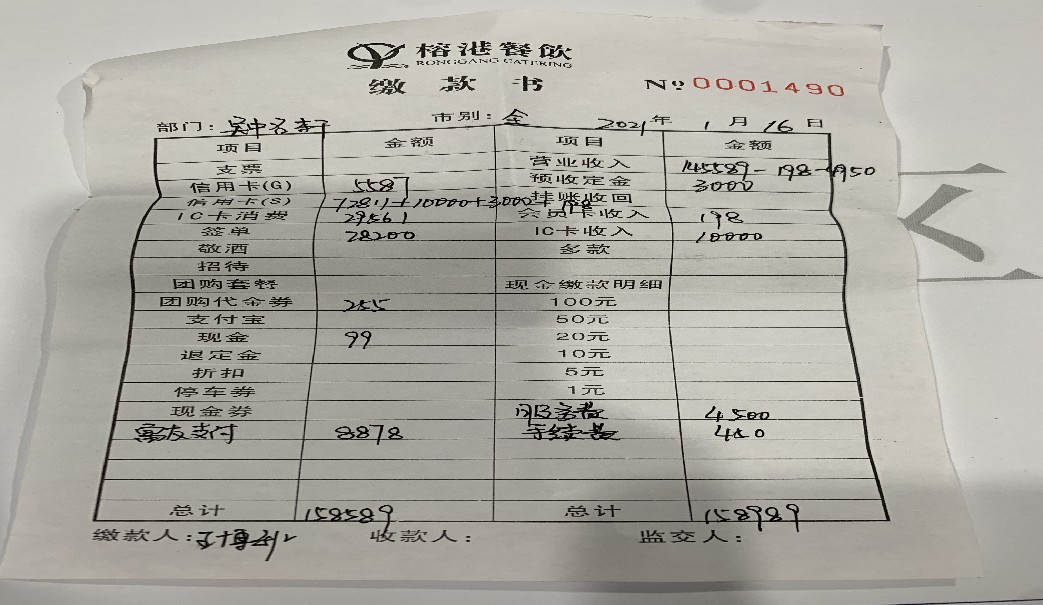 榕港餐飲
RONGGANG CATERING
缴款书 № 0001490
部门： 市别：全 2021年1月16日
项目 金额 项目 金额
支票 营业收入 145589-198-4950
信用卡(G) 5587 预收定金 3000
信用卡(S) 72811+10000+3000+198 挂账收回
IC卡消费 29561 会员卡收入 198
签单 28200 IC卡收入 10000
敬酒 多款
招待
团购套餐 现金缴款明细
团购代金券 255 100元
支付宝 50元
现金 99 20元
退定金 10元
折扣 5元
停车券 1元
现金券 服务费 4500
支付 8878 手续费 450
总计 158589 总计 158989
缴款人： 收款人： 监交人：